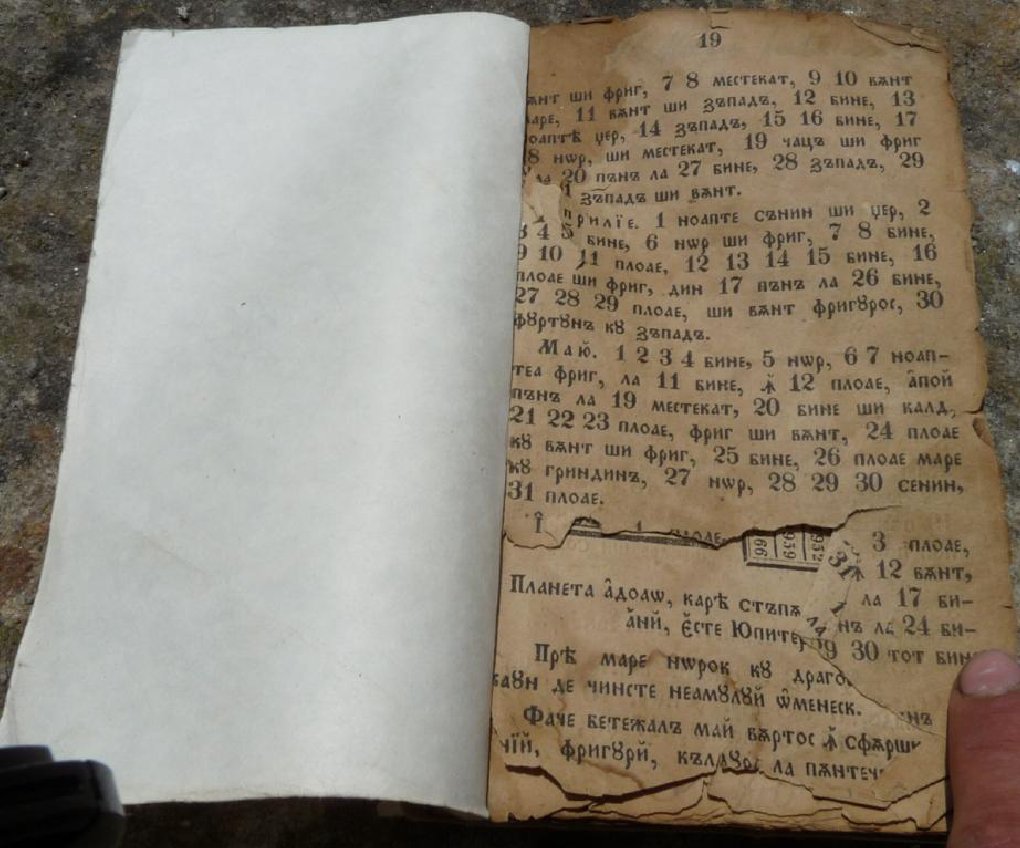 19
вѫнт ши фриг, 7 8 местекат, 9 10 вѫнт
маре, 11 вѫнт ши зъпадъ, 12 бине, 13
ноаптѣ џер, 14 зъпадъ, 15 16 бине, 17
18 нѡр, ши местекат, 19 чацъ ши фриг
ла 20 пънъ ла 27 бине, 28 зъпадъ, 29
зъпадъ ши вѫнт.
Прилїе. 1 ноапте сънин ши џер, 2
3 4 5 бине, 6 нѡр ши фриг, 7 8 бине,
9 10 11 плоае, 12 13 14 15 бине, 16
плоае ши фриг, дин 17 пънъ ла 26 бине,
27 28 29 плоае, ши вѫнт фригꙋрос, 30
фꙋртꙋнъ кꙋ зъпадъ.
Маю̆. 1 2 3 4 бине, 5 нѡр, 6 7 ноап-
теа фриг, ла 11 бине, ꙟ҆ 12 плоае, а҆пой
пънъ ла 19 местекат, 20 бине ши калд,
21 22 23 плоае, фриг ши вѫнт, 24 плоае
кꙋ вѫнт ши фриг, 25 бине, 26 плоае маре
кꙋ гриндинъ, 27 нѡр, 28 29 30 сенин,
31 плоае.
1 плоае, 3 плоае,
952
959
966
31 ꙟ҆ 12 вѫнт,
Планета а҆доаѡ, карѣ стъпѫ ла 17 би-
а҆нй, є҆сте Юпитер нъ ла 24 би-
29 30 тот бине
Прѣ маре нѡрок кꙋ драгο
де чинсте неамꙋлꙋй ѡ҆менеск.
Фаче бетежалъ май вѫртос ꙟ҆ сфѫрши
нїй, фригꙋрй, кълдꙋрй ла пѫнтече